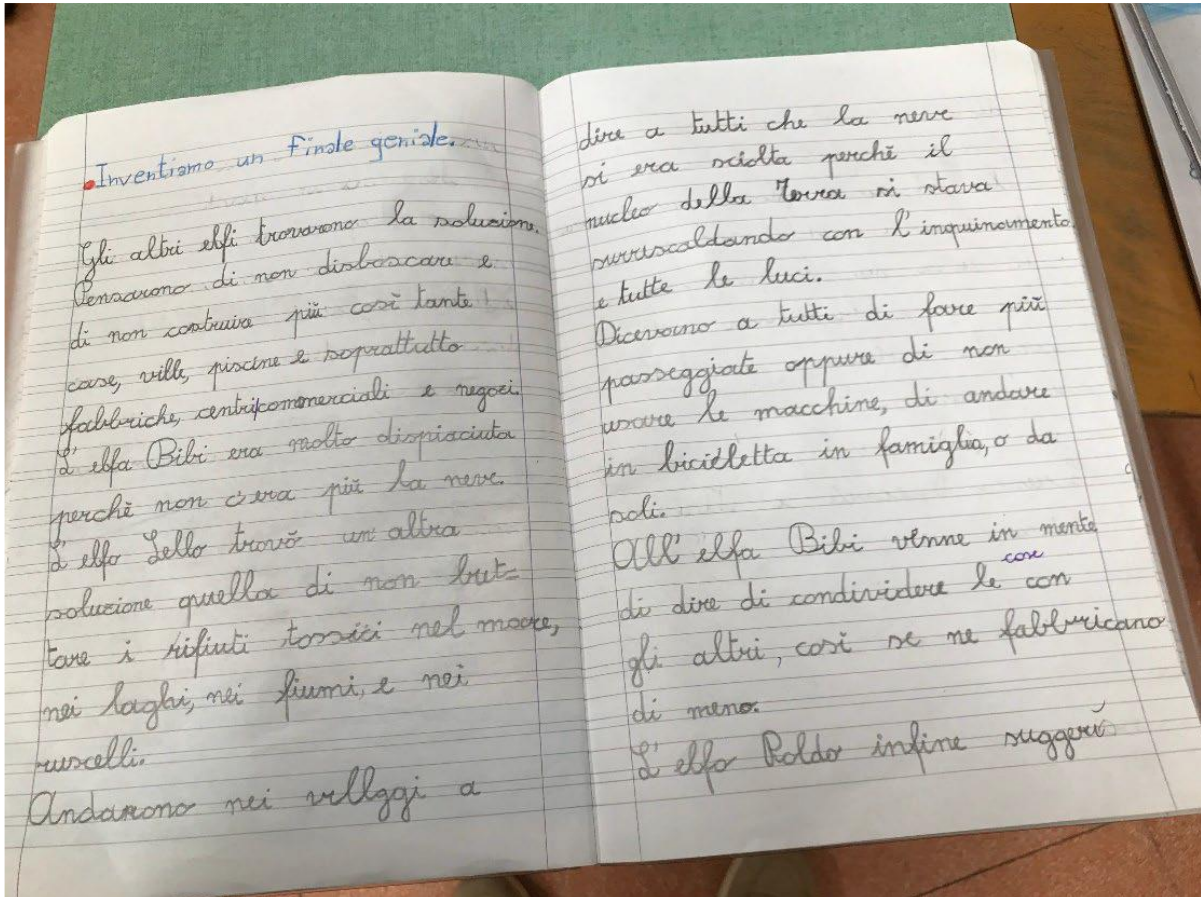 Inventiamo un finale geniale.
Gli altri elfi trovarono la soluzione.
Pensarono di non disboscare e
di non costruire più così tante
case, ville, piscine e soprattutto
fabbriche, centri commerciali e negozi.
L'elfa Bibi era molto dispiaciuta
perchè non c'era più la neve.
L'elfo Lello trovò un altra
soluzione quella di non but=
tare i rifiuti tossici nel mare,
nei laghi, nei fiumi, e nei
ruscelli.
Andarono nei villggi a
dire a tutti che la neve
si era sciolta perchè il
nucleo della Terra si stava
surriscaldando con l'inquinamento
e tutte le luci.
Dicevano a tutti di fare più
passeggiate oppure di non
usare le macchine, di andare
in bicicletta in famiglia, o da
soli.
All'elfa Bibi venne in mente
di dire di condividere le cose con
gli altri, così se ne fabbricano
di meno.
L'elfo Roldo infine suggerì